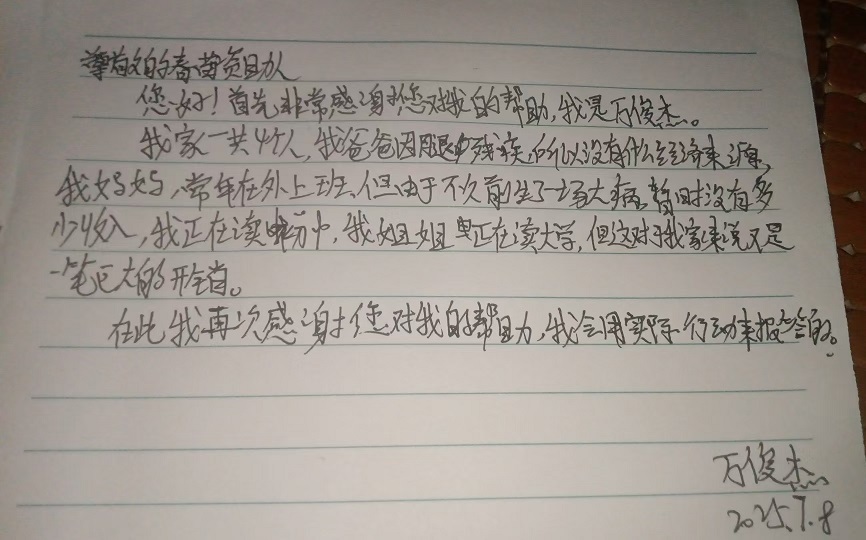 尊敬的春苗资助人
您好！首先非常感谢您对我的帮助，我是万俊杰。
我家一共4个人，我爸爸因腿部残疾，所以没有什么经济来源，
我妈妈，常年在外上班、但由于不久前生了一场大病。暂时没有多
少收入，我正在读初中，我姐姐正在读大学，但这对于我家来说不是
一笔巨大的开销。
在此我再次感谢您对我的帮助，我会用实际行动来报答的。
万俊杰
2025.7.8